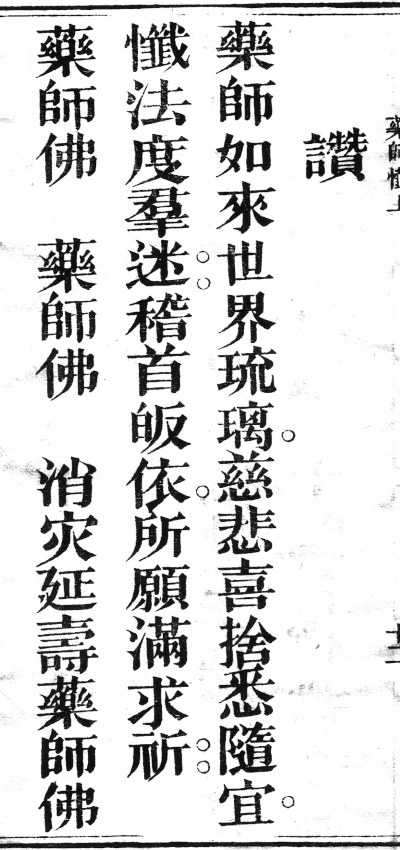 藥師懺上
讚
藥師如來世界琉璃。慈悲喜捨悉隨宜。
懺法度羣迷。。稽首皈依。所願滿求祈。。
藥師佛　藥師佛　消灾延壽藥師佛